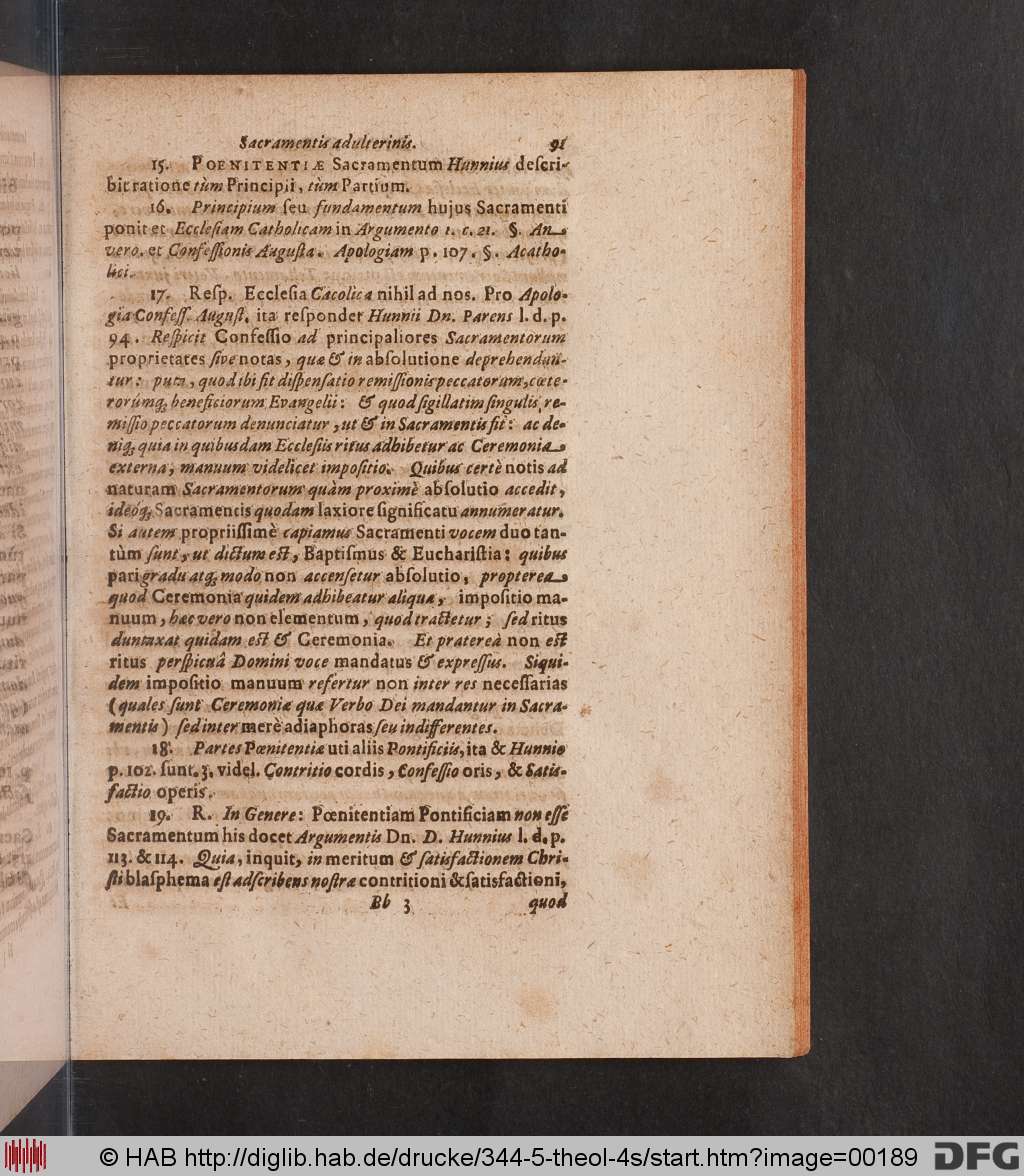 Sacramentis adulterinis. 91
15. POENITENTIÆ Sacramentum Hunnius deſcri-
bit ratione tùm Principii, tùm Partium.
16. Principium ſeu fundamentum hujus Sacramenti
ponit et Eccleſiam Catholicam in Argumento 1. c. 21. §. An
vero. et Confeſſionis Auguſta. Apologiam p. 107. §. Acatho-
lici.
17. Reſp. Eccleſia Cacolica nihil ad nos. Pro Apolo-
gia Confeſſ. Auguſt. ita reſpondet Hunnii Dn. Parens l. d. p.
94. Reſpicit Confeſſio ad principaliores Sacramentorum
proprietates ſive notas, quæ & in abſolutione deprehendun-
tur: puta, quod ibi fit diſpenſatio remiſſionis peccatorum, cœte-
rorúmq; beneficiorum Evangelii: & quod ſigillatim ſingulis re-
miſſio peccatorum denunciatur, ut & in Sacramentis fit: ac de-
niq; quia in quibusdam Eccleſiis ritus adhibetur ac Ceremonia
externa, manuum videlicet impoſitio. Quibus certè notis ad
naturam Sacramentorum quàm proximè abſolutio accedit,
ideóq; Sacramentis quodam laxiore ſignificatu annumeratur.
Si autem propriiſſimè capiamus Sacramenti vocem duo tan-
tùm ſunt, ut dictum eſt, Baptiſmus & Euchariſtia: quibus
pari gradu atq; modo non accenſetur abſolutio, propterea
quod Ceremonia quidem adhibeatur aliqua, impoſitio ma-
nuum, hæc vero non elementum, quod tractetur; ſed ritus
duntaxat quidam eſt & Ceremonia. Et prætereà non eſt
ritus perſpicuâ Domini voce mandatus & expreſſus. Siqui-
dem impoſitio manuum refertur non inter res neceſſarias
(quales ſunt Ceremoniæ quæ Verbo Dei mandantur in Sacra-
mentis) ſed inter merè adiaphoras ſeu indifferentes.
18. Partes Pœnitentiæ uti aliis Pontificiis, ita & Hunnio
p. 102. ſunt. 3. videl. Contritio cordis, Confeſſio oris, & Satis-
factio operis.
19. R. In Genere: Pœnitentiam Pontificiam non eſſe
Sacramentum his docet Argumentis Dn. D. Hunnius l. d. p.
113. & 114. Quia, inquit, in meritum & ſatisfactionem Chri-
ſti blaſphema eſt adſcribens noſtræ contritioni & ſatisfactioni,
Bb 3 quod
© HAB http://diglib.hab.de/drucke/344-5-theol-4s/start.htm?image=00189 DFG